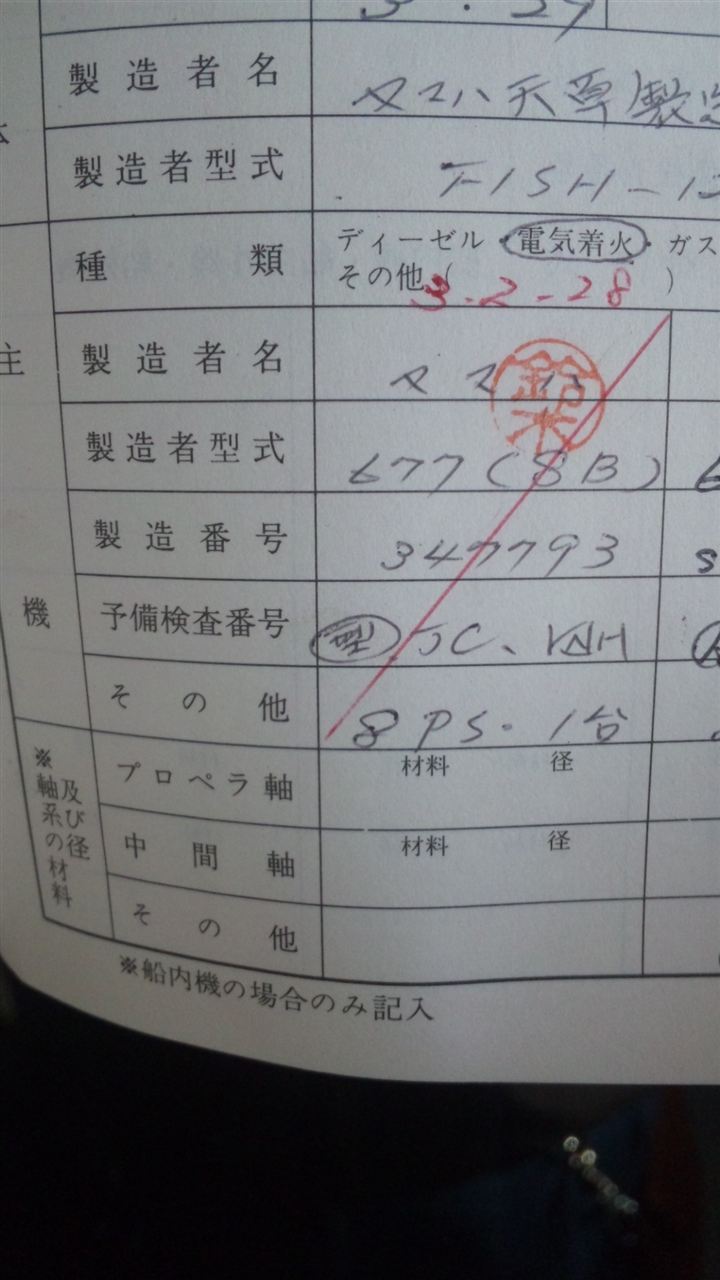 3.29
製造者名 ヤマハ天草製造
製造者型式 FISH-1
種類 ディーゼル・電気着火・ガス
その他( 3.2-28 )
主機
製造者名 ヤマハ
鈴木
製造者型式 677(8B)
製造番号 3477793
予備検査番号 型 JC、
その他 8PS.1台
※軸系の材料及び径
プロペラ軸 材料 径
中間軸 材料 径
その他
※船内機の場合のみ記入